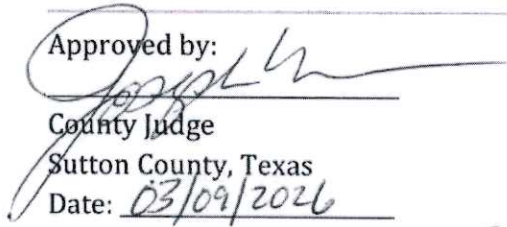 Approved by:
County Judge
Sutton County, Texas
Date: 03/09/2026